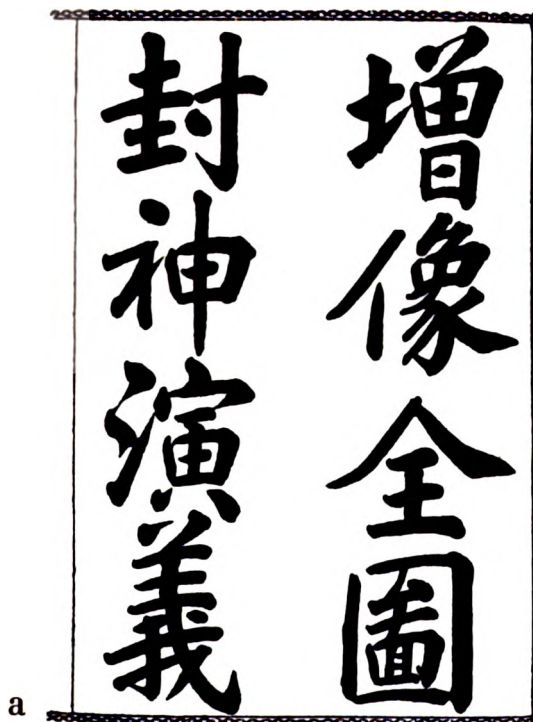 增像全圖
封神演義
a